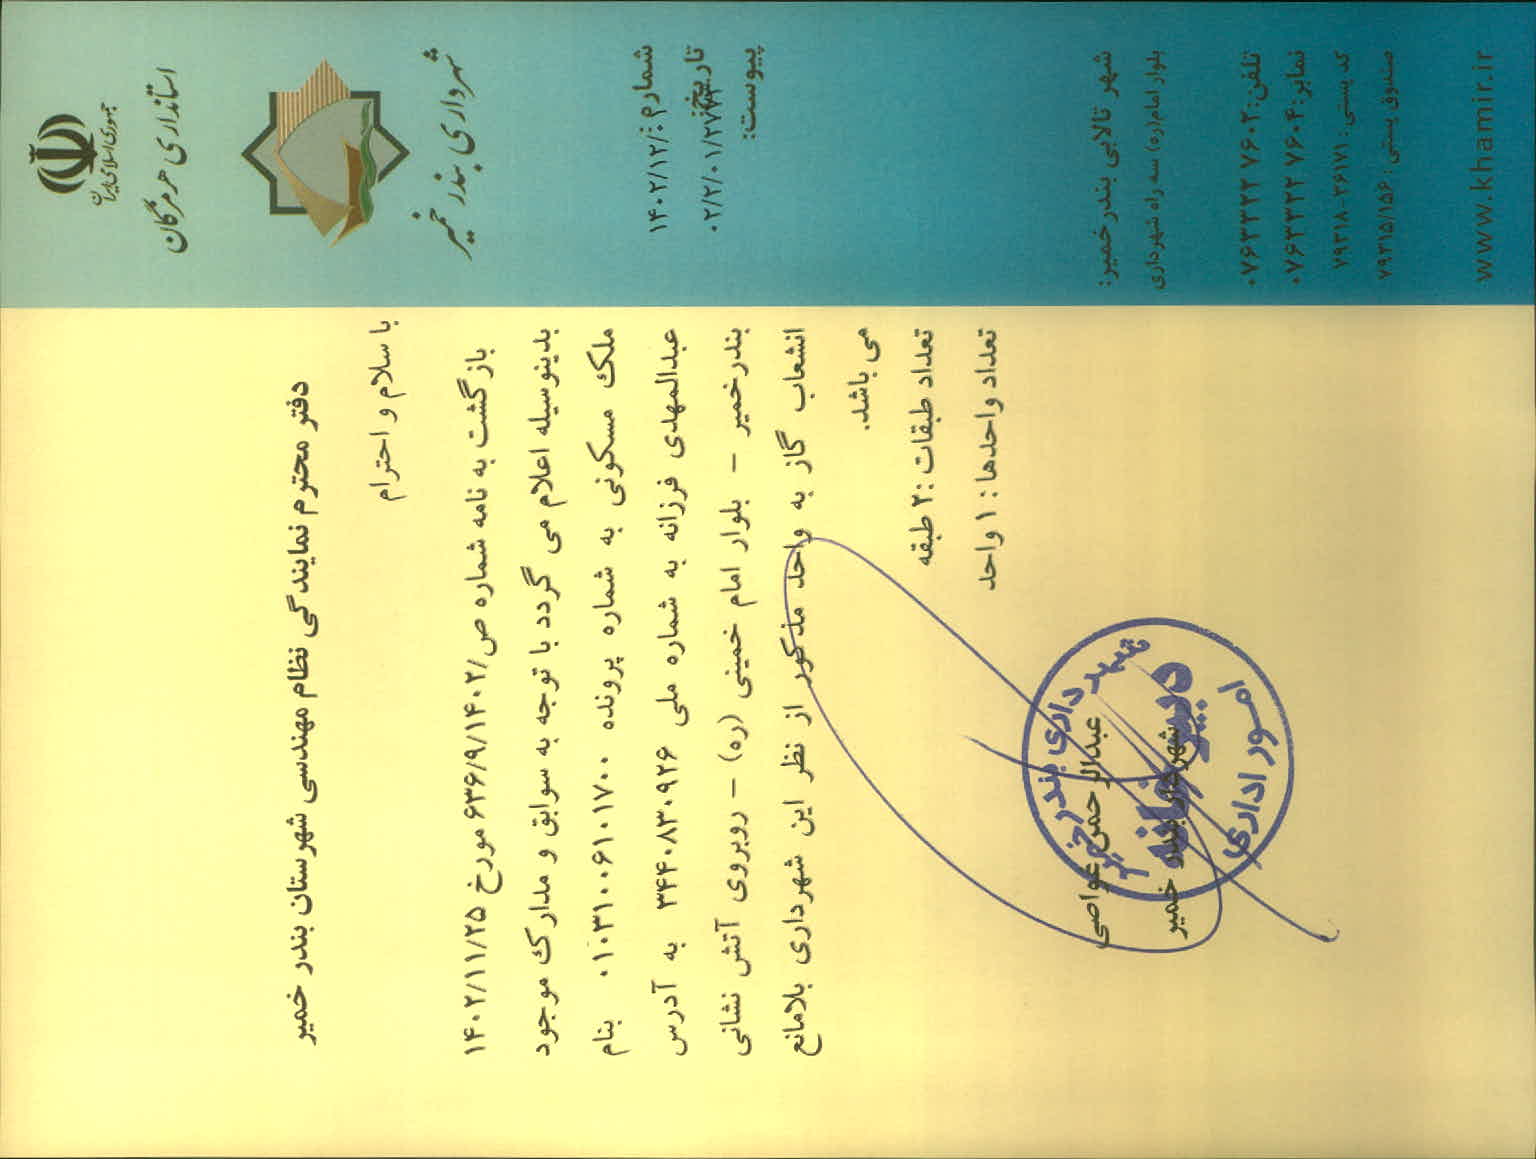 جمهوری اسلامی ایران
استانداری هرمزگان
شهرداری بندر خمیر
شماره:
۱۴۰۲/۱۲/۰
تاریخ:
۰۲/۲/۰۱/۲۷۷۳
پیوست:
شهر تالابی بندر خمیر:
بلوار امام(ره) سه راه شهرداری
تلفن: ۰۷۶۳۳۲۲ ۷۶۰۲
نمابر: ۰۷۶۳۳۲۲ ۷۶۰۴
کد پستی: ۷۹۳۱۸-۳۶۱۷۱
صندوق پستی: ۷۹۳۱۵/۱۵۶
www.khamir.ir
دفتر محترم نمایندگی نظام مهندسی شهرستان بندر خمیر
با سلام و احترام
بازگشت به نامه شماره ص/۶۳۶/۹/۱۴۰۲ مورخ ۱۴۰۲/۱۱/۲۵
بدینوسیله اعلام می گردد با توجه به سوابق و مدارک موجود
ملک مسکونی به شماره پرونده ۰۱۰۳۱۰۰۶۱۰۱۷۰۰ بنام
عبدالمهدی فرزانه به شماره ملی ۳۴۴۰۸۳۰۹۲۶ به آدرس
بندرخمیر - بلوار امام خمینی (ره) - روبروی آتش نشانی
انشعاب گاز به واحد مذکور از نظر این شهرداری بلامانع
می باشد.
تعداد طبقات :۲ طبقه
تعداد واحدها : ۱ واحد
عبدالرحمن غواصی
شهردار بندر خمیر
شهرداری بندر خمیر
دبیرخانه
امور اداری